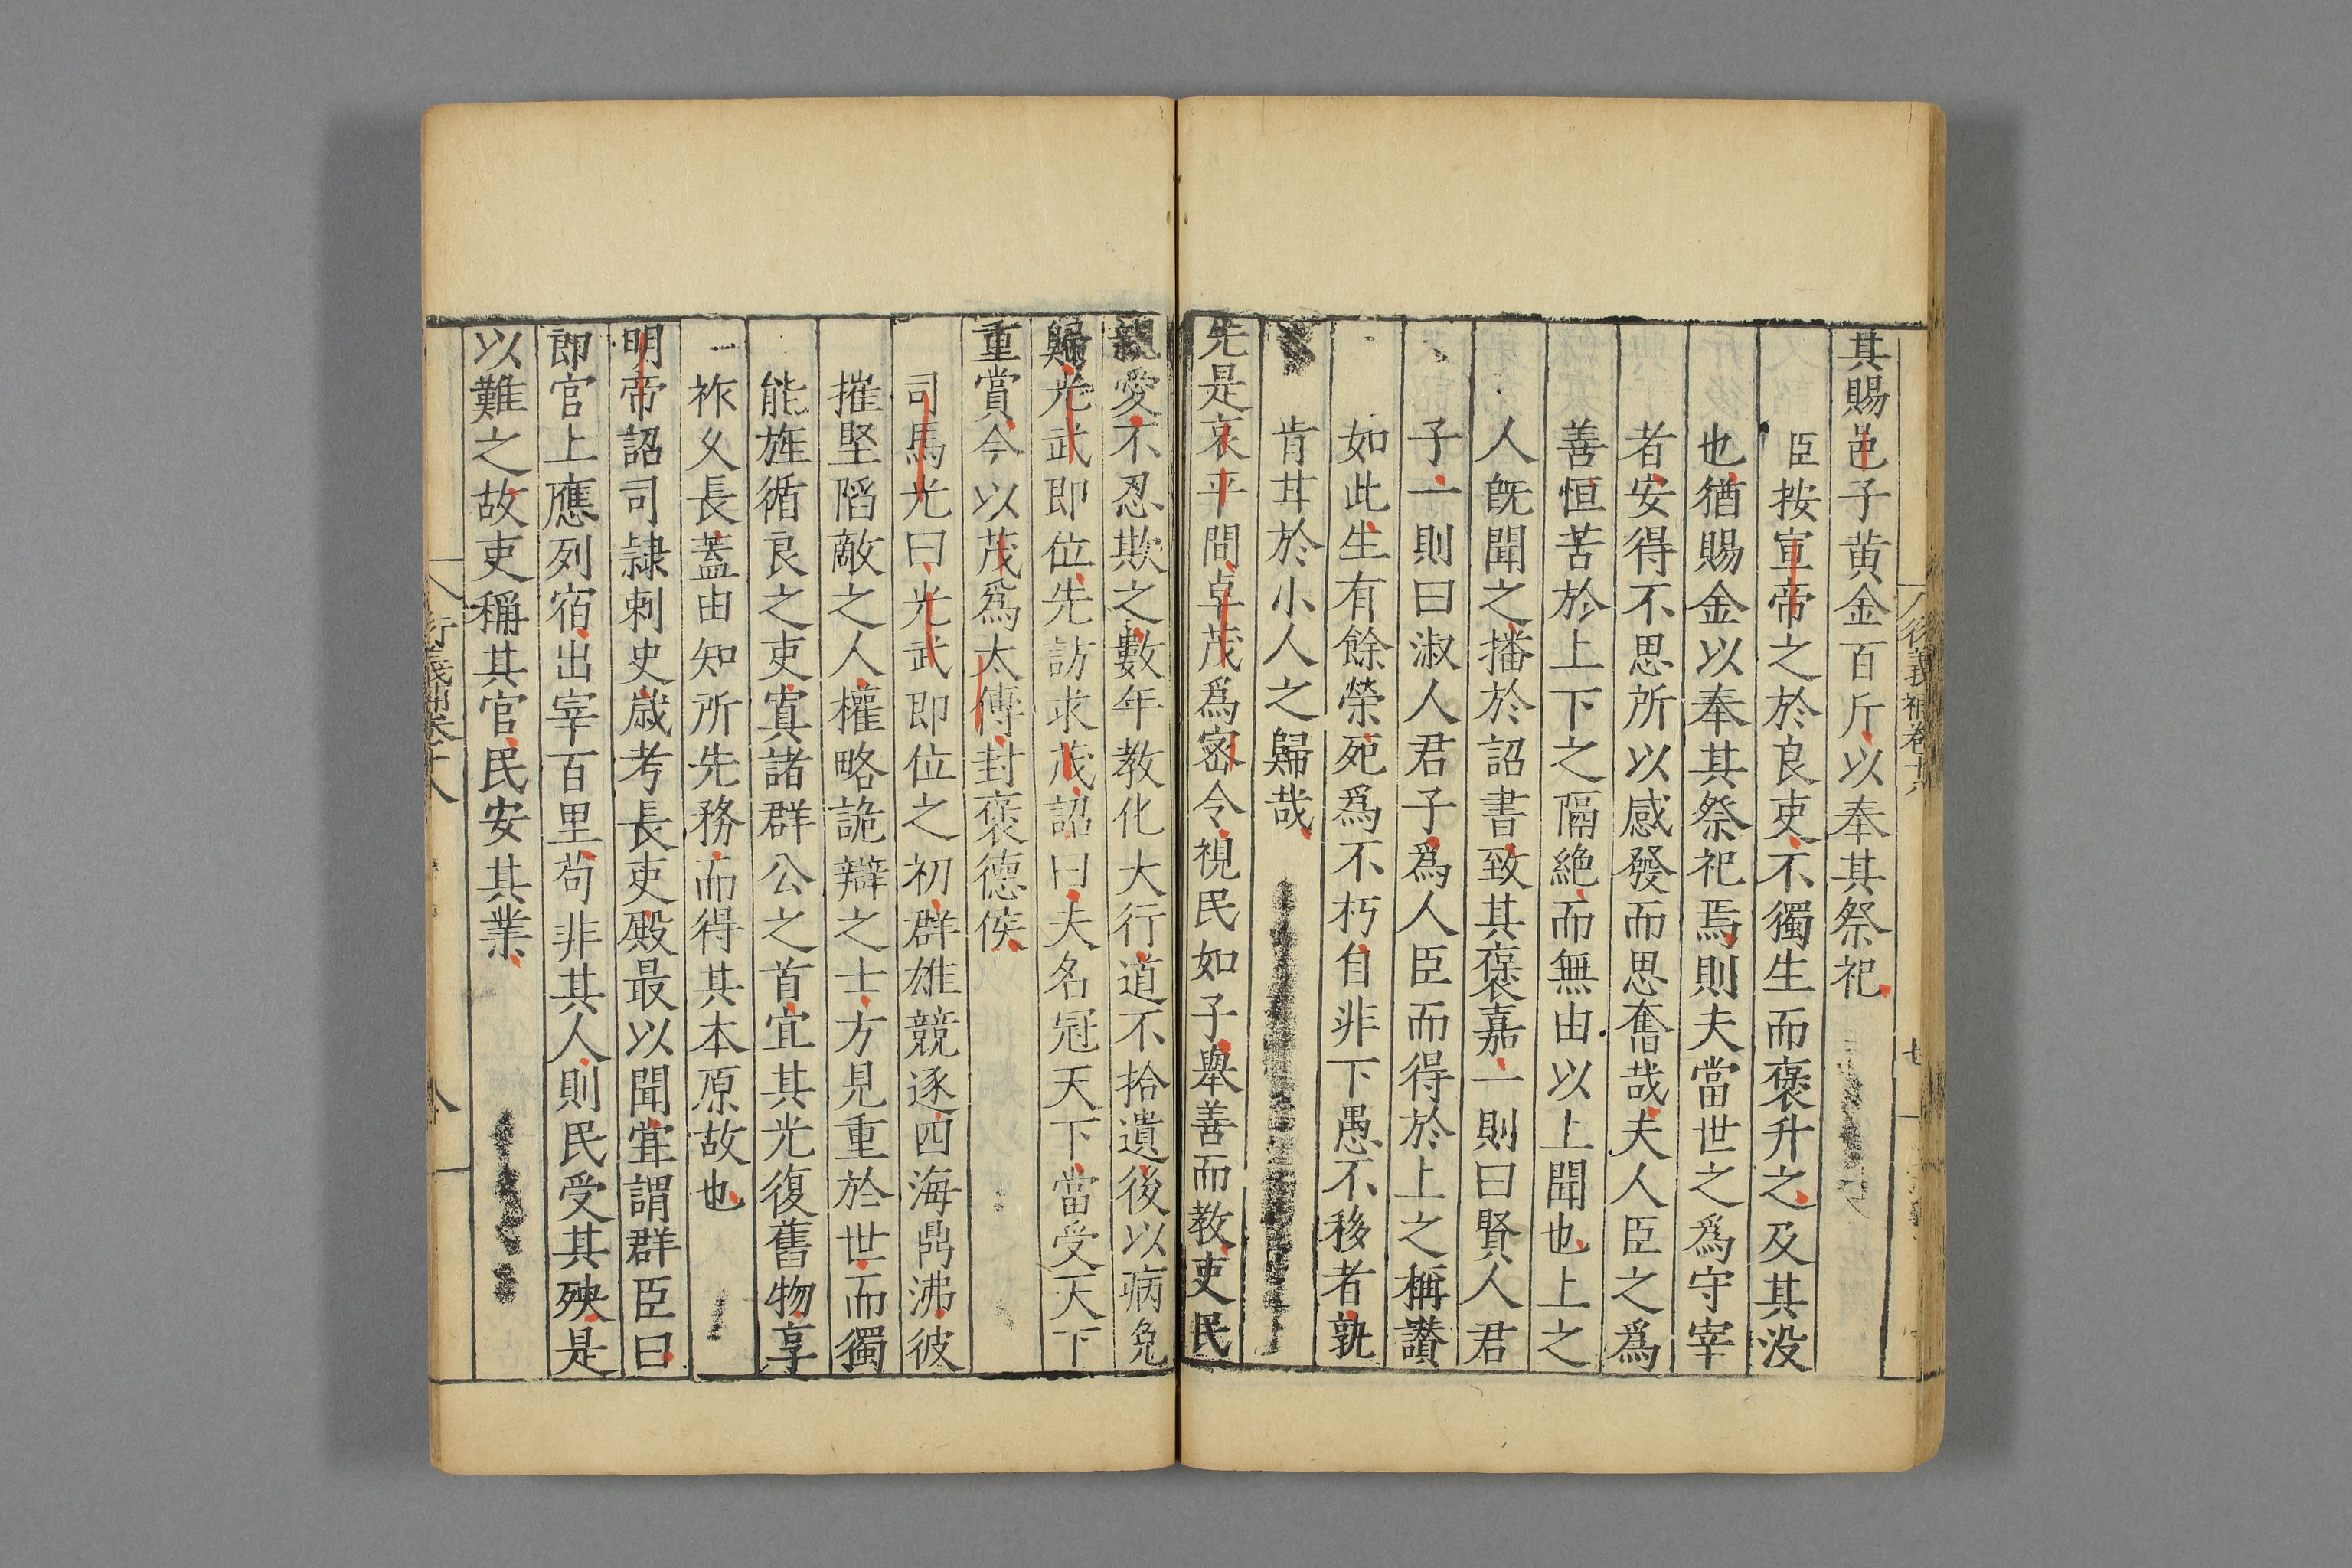 其賜邑子黃金百斤以奉其祭祀
臣按宣帝之於良吏不獨生而褒升之及其没
也猶賜金以奉其祭祀焉則夫當世之爲守宰
者安得不思所以感發而思奮哉夫人臣之爲
善恒苦於上下之隔絶而無由以上聞也上之
人既聞之播於詔書致其褒嘉一則曰賢人君
子一則曰淑人君子爲人臣而得於上之稱讃
如此生有餘榮死爲不朽自非下愚不移者孰
肯甘於小人之歸哉
先是哀平間卓茂爲密令視民如子舉善而教吏民
親愛不忍欺之數年教化大行道不拾遺後以病免
歸光武即位先訪求茂詔曰夫名冠天下當受天下
重賞今以茂爲太傅封褒德侯
司馬光曰光武即位之初群雄競逐四海鼎沸彼
摧堅陷敵之人權略詭辯之士方見重於世而獨
能旌循良之吏寘諸群公之首宜其光復舊物享
祚久長蓋由知所先務而得其本原故也
明帝詔司隷刺史歲考長吏殿最以聞嘗謂群臣曰
即官上應列宿出宰百里苟非其人則民受其殃是
以難之故吏稱其官民安其業